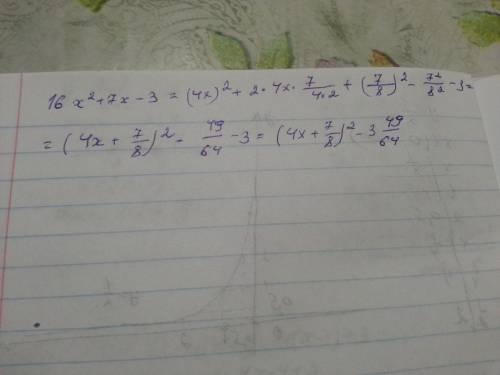 16x² + 7x - 3 = (4x)² + 2·4x·7/(4·2) + (7/8)² - 7²/8² - 3 =
= (4x + 7/8)² - 49/64 - 3 = (4x + 7/8)² - 3 49/64